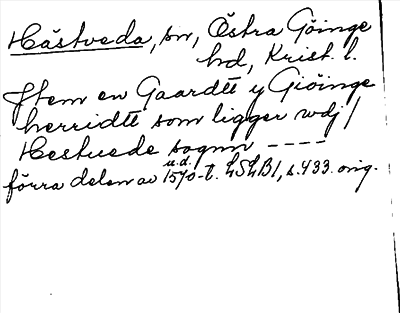 Hästveda, sn, Östra Göinge
hd, Krist. l.
Jtem en Gaardtt y Giöinge
herridtt som ligger wdj /
Hestuede sognn ----
u.d.
förra delen av 1570-t. LSLB1, s. 433. orig.